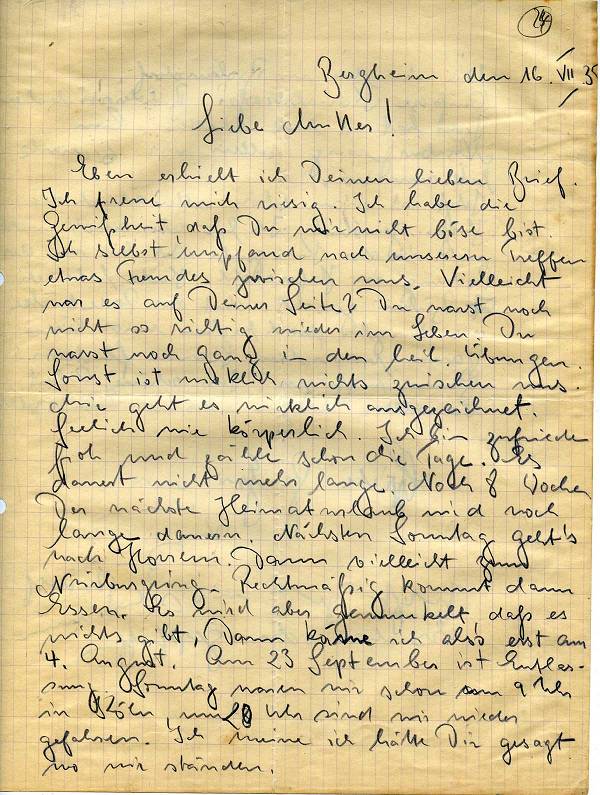 24
Bergheim den 16. VII. 35
Liebe Mutter!
Eben erhielt ich Deinen lieben Brief.
Ich freue mich riesig. Ich habe die
Gewißheit, daß Du mir nicht böse bist.
Ich selbst empfand nach unserem Treffen
etwas Fremdes zwischen uns. Vielleicht
war es auf Deiner Seite? Du warst noch
nicht so richtig wieder im Leben. Du
warst noch ganz in den heil. Übungen.
Sonst ist wirklich nichts zwischen uns.
Mir geht es wirklich ausgezeichnet.
Seelich wie körperlich. Ich bin zufrieden
froh und zähle schon die Tage. Es
dauert nicht mehr lange. Noch 8 Wochen
Der nächste Heimaturlaub wird noch
lange dauern. Nächsten Sonntag geht's
nach Horrem. Dann vielleicht zum
Nürburgring. Rechtmäßig kommt dann
Essen. Es wird aber gemunkelt daß es
nichts gibt, Dann käme ich also erst am
4. August. Am 23 September ist Entlas-
sung. Sonntag waren wir schon um 9 Uhr
in Köln, um 20 Uhr sind wir wieder
gefahren. Ich meine ich hätte Dir gesagt
wo wir ständen.